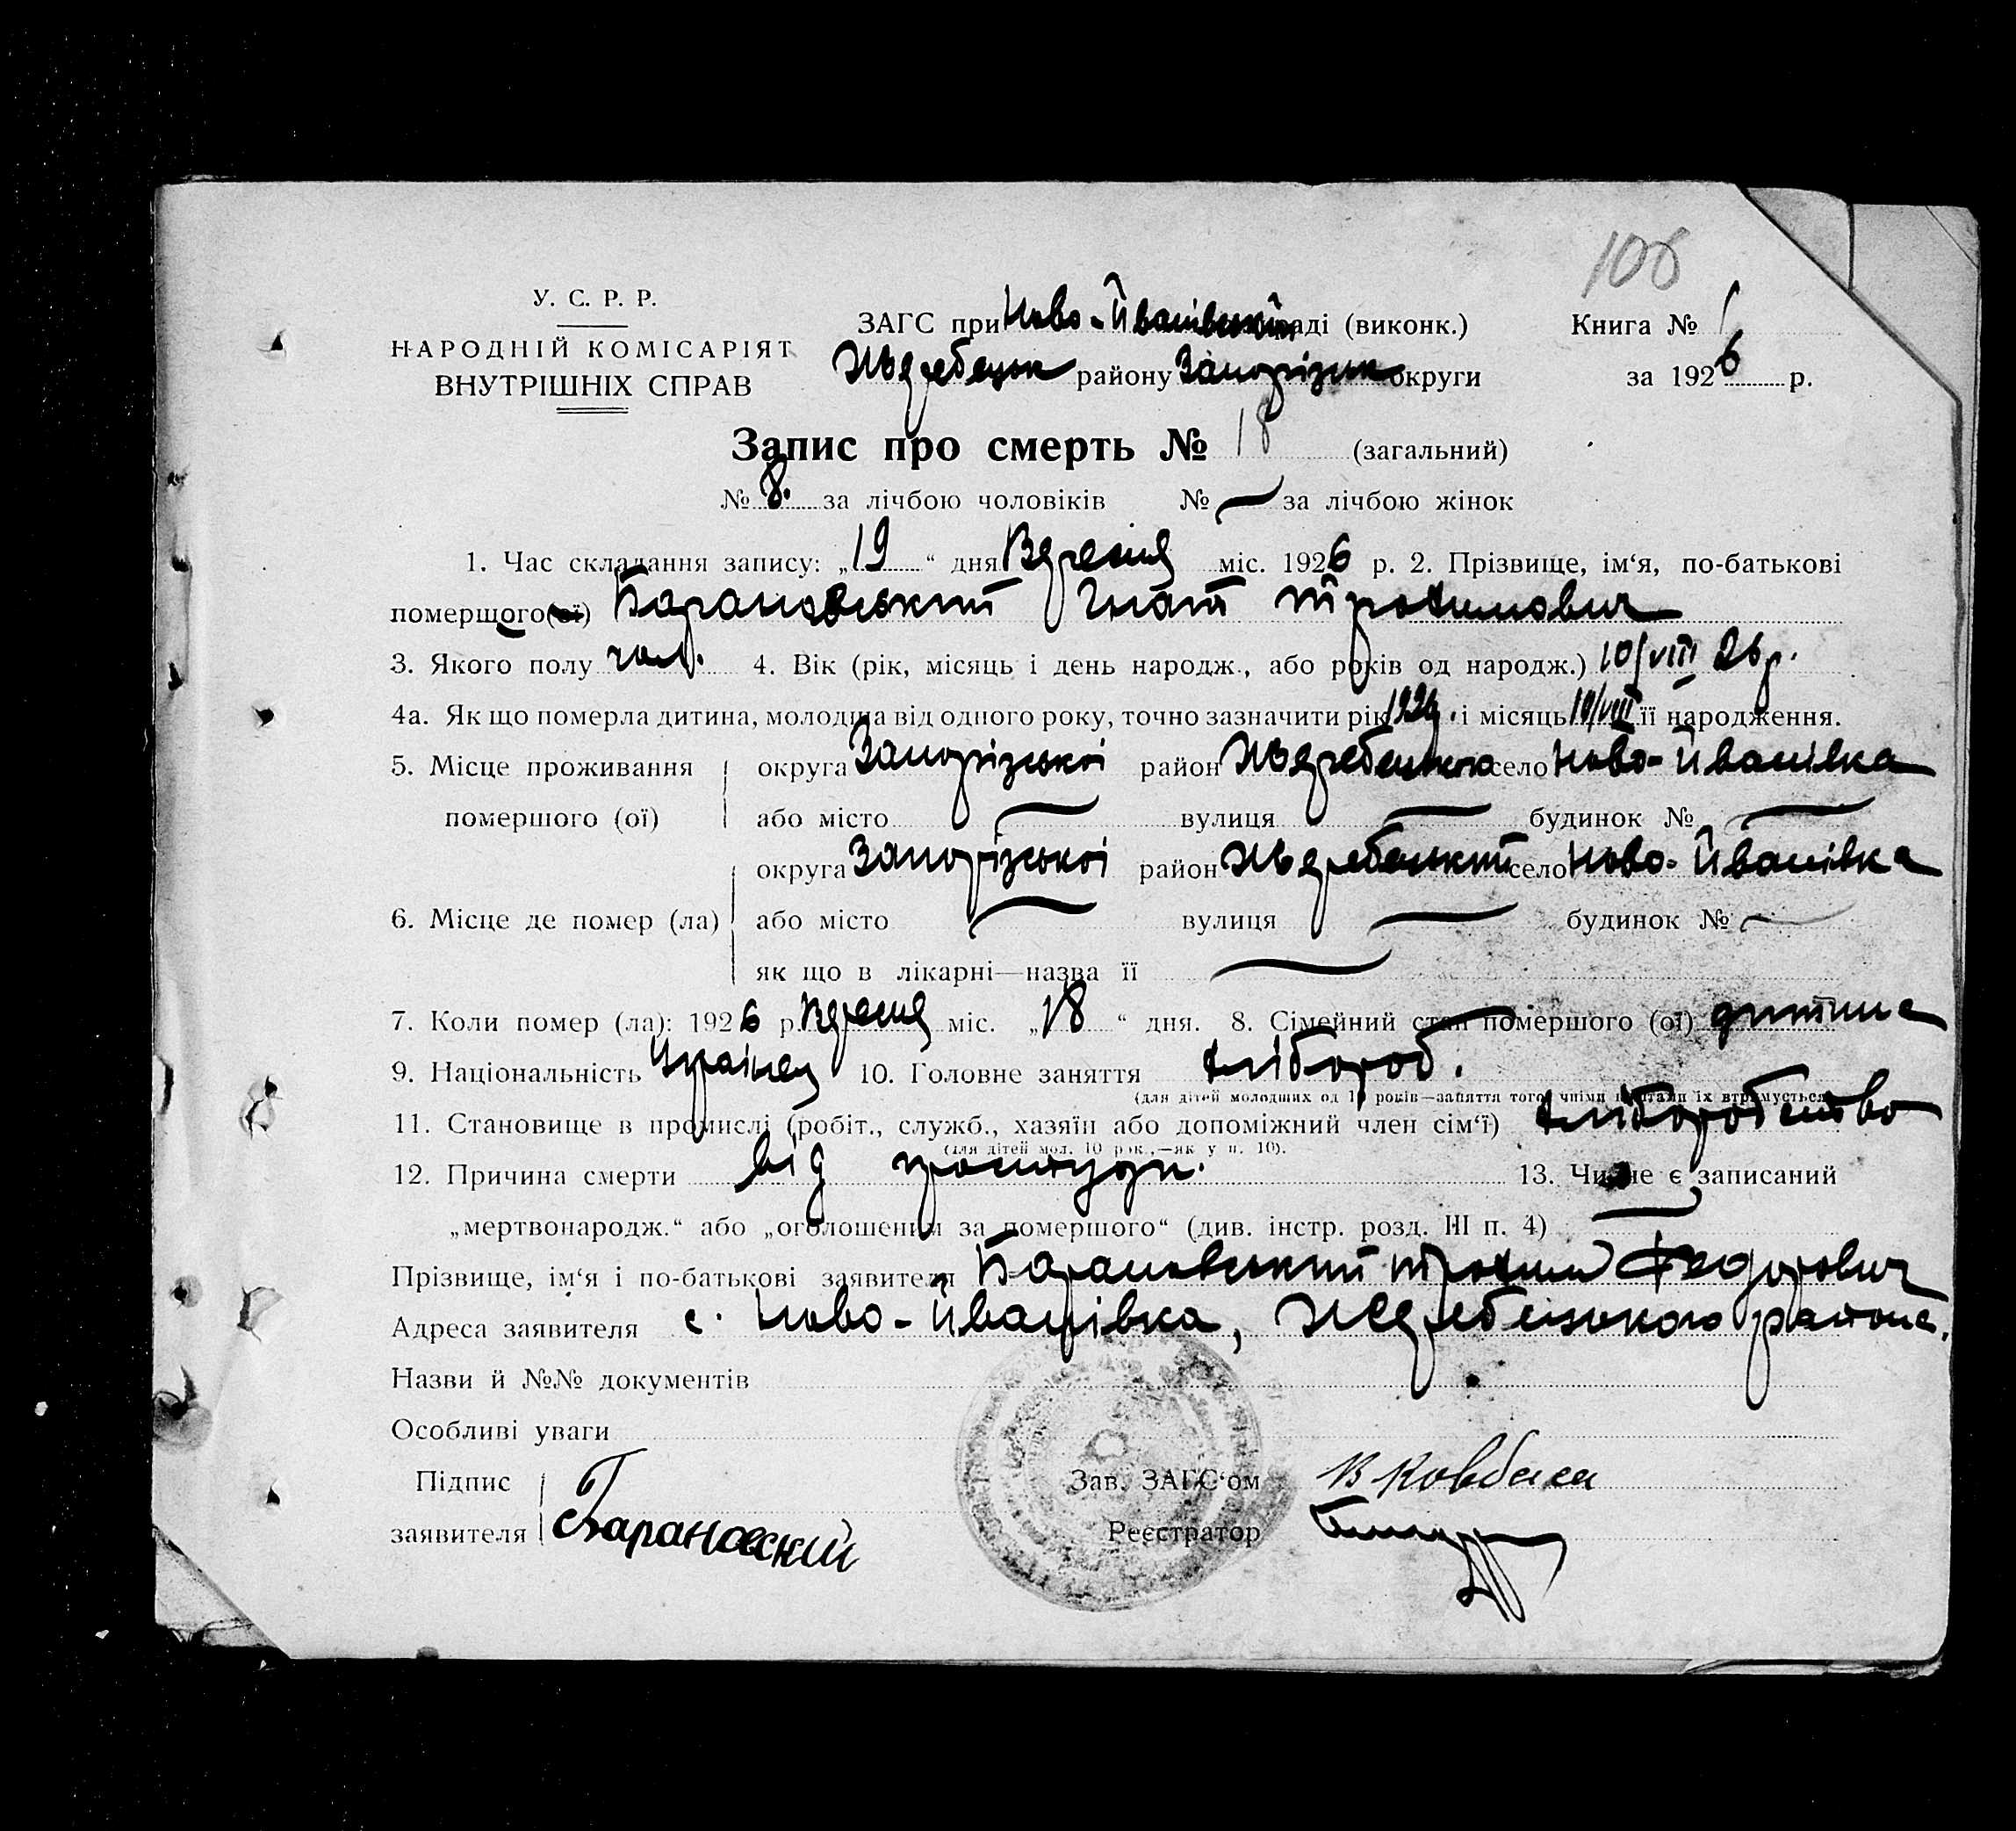 106
У. С. Р. Р.
НАРОДНІЙ КОМІСАРІЯТ
ВНУТРІШНІХ СПРАВ
ЗАГС при Ново-Йванівській раді (виконк.)
Жеребецьк району Запорізьк округи
Книга №
за 1926 р.
Запис про смерть № 18 (загальний)
№ 8. за лічбою чоловіків № — за лічбою жінок
1. Час складання запису: „19“ дня Вересня міс. 1926 р. 2. Прізвище, ім‘я, по-батькові
померщого(ої) Барановський Гнат Трохимович
3. Якого полу чол. 4. Вік (рік, місяць і день народж., або років од народж.) 10/VIII 26 р.
4а. Як що померла дитина, молодша від одного року, точно зазначити рік 192 і місяць 10/VIII її народження.
5. Місце проживання округа Запорізької район Жеребецького село Ново-Йванівка
помершого (ої) або місто — вулиця — будинок № —
округа Запорізької район Жеребецький село Ново-Йванівка
6. Місце де помер (ла) або місто — вулиця — будинок № —
як що в лікарні—назва її —
7. Коли помер (ла): 1926 р. Вересня міс. „18“ дня. 8. Сімейний стан помершого (ої) дитина
9. Національність Украінец 10. Головне заняття хлібороб.
(для дітей молодших од 10 років—заняття того, чиїми коштами їх втримується)
11. Становище в промислі (робіт., служб., хазяїн або допоміжний член сім‘ї) хліборобство
(для дітей мол. 10 рок.,—як у п. 10).
12. Причина смерти від простуди. 13. Чи не є записаний
„мертвонародж.“ або „оголошеним за помершого“ (див. інстр. розд. III п. 4) —
Прізвище, ім‘я і по-батькові заявителя Барановський Трохим Федорович
Адреса заявителя с. Ново-Йванівка, Жеребецького района.
Назви й №№ документів
Особливі уваги
Підпис
заявителя Барановский
Зав. ЗАГС‘ом В Ковбаса
Реєстратор